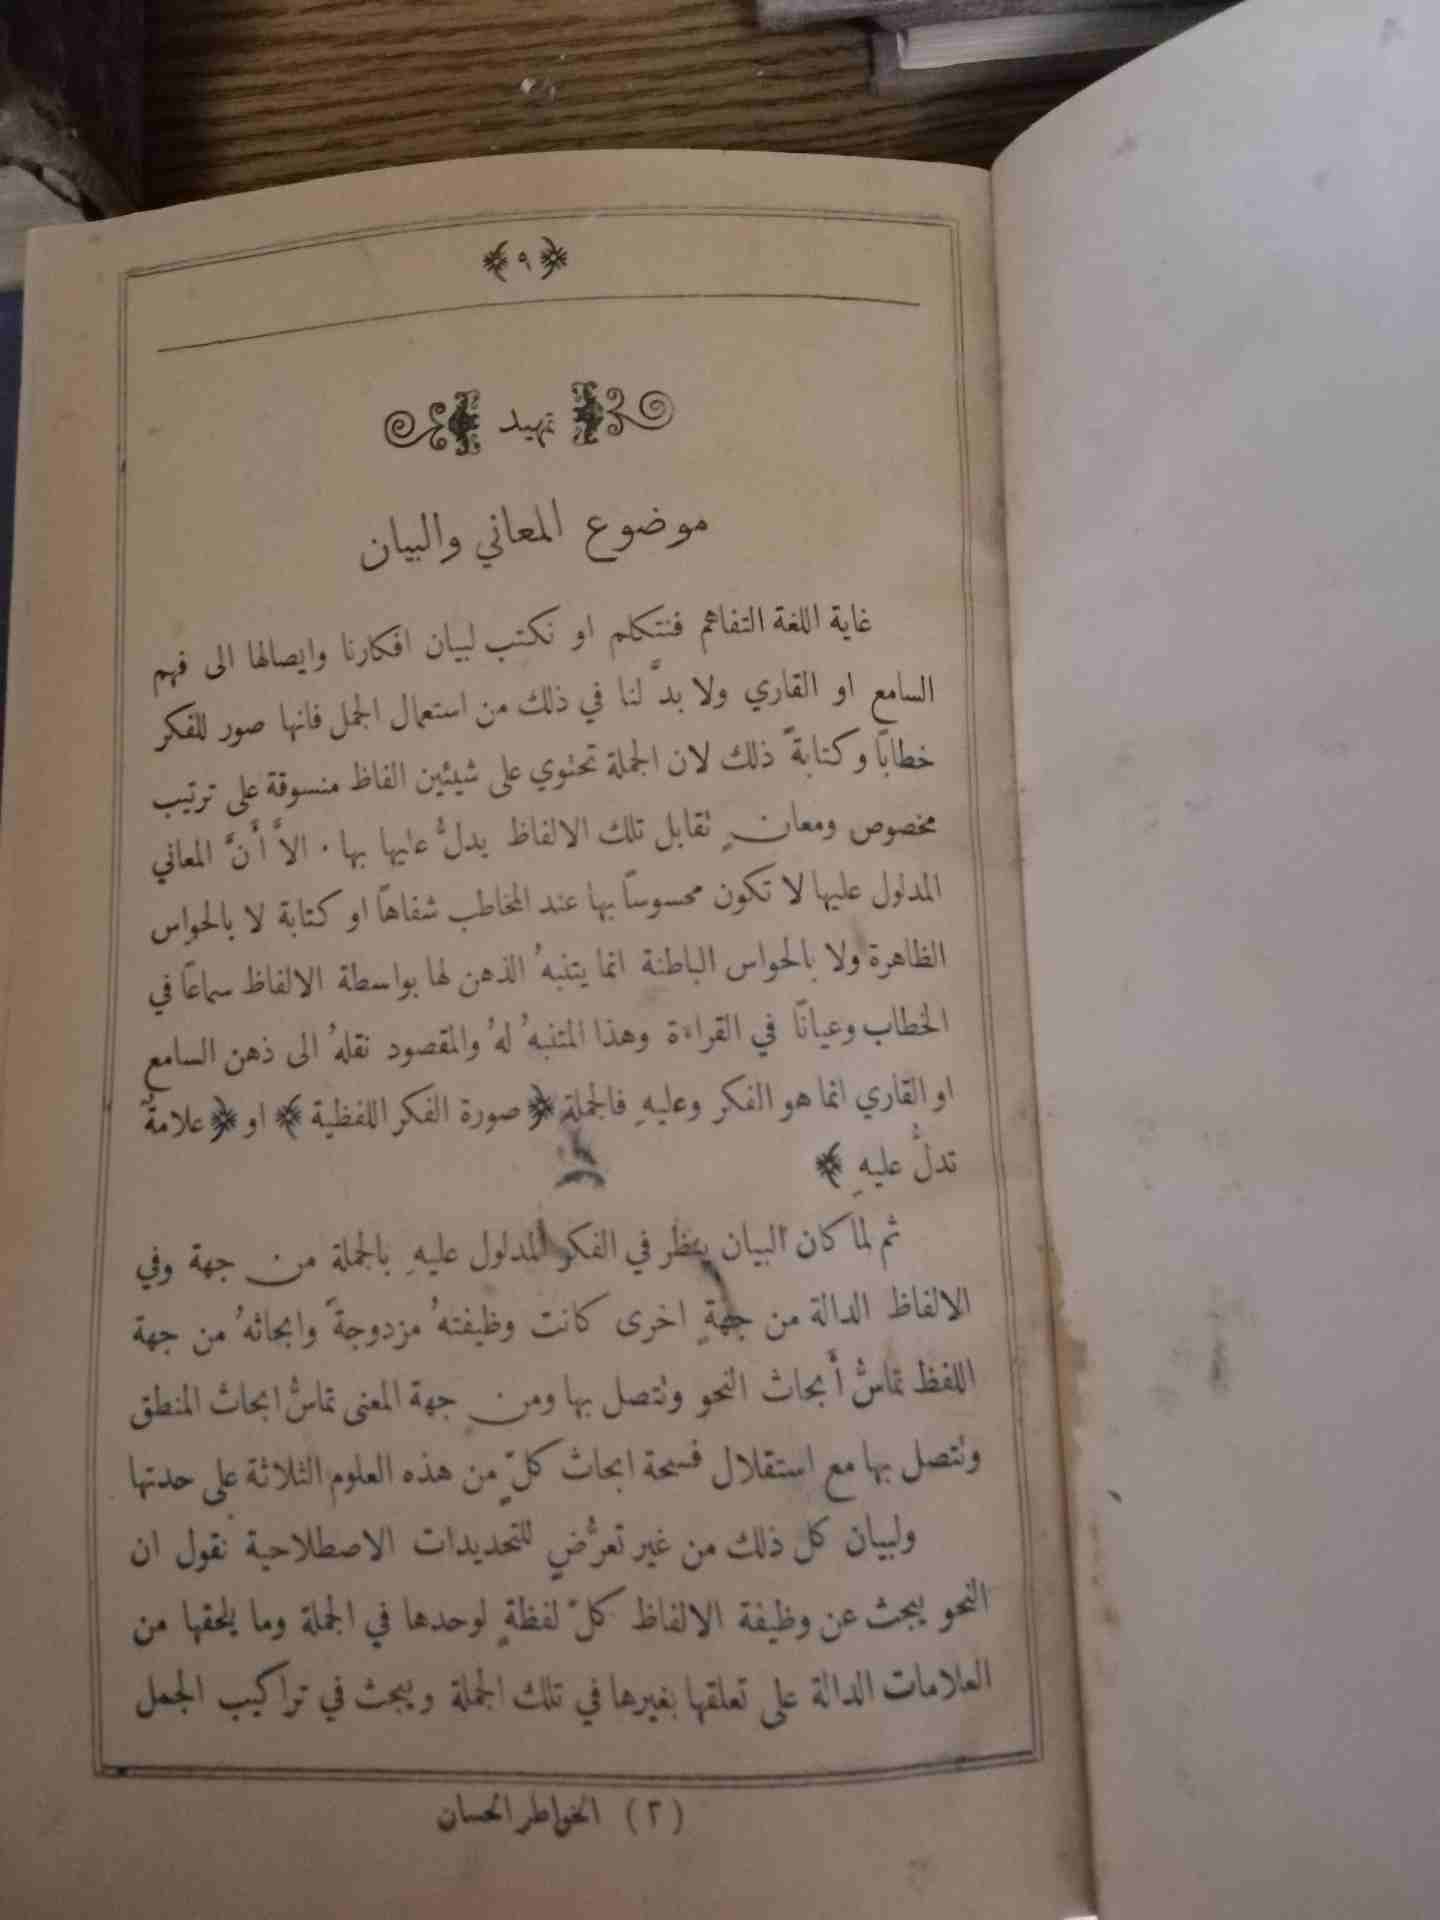 ﴿ ٩ ﴾
تمهيد
موضوع المعاني والبيان
غاية اللغة التفاهم فنتكلم او نكتب لبيان افكارنا وايصالها الى فهم
السامع او القاري ولا بدَّ لنا في ذلك من استعمال الجمل فانها صور للفكر
خطابًا وكتابةً ذلك لان الجملة تحتوي على شيئين الفاظ منسوقة على ترتيب
مخصوص ومعانٍ تقابل تلك الالفاظ يدلُّ عليها بها · الاَّ أَنَّ المعاني
المدلول عليها لا تكون محسوسًا بها عند المخاطب شفاهًا او كتابة لا بالحواس
الظاهرة ولا بالحواس الباطنة انما يتنبهُ الذهن لها بواسطة الالفاظ سماعًا في
الخطاب وعيانًا في القراءة وهذا المتنبهُ لهُ والمقصود نقلهُ الى ذهن السامع
او القاري انما هو الفكر وعليهِ فالجملة ﴿ صورة الفكر اللفظية ﴾ او ﴿ علامةٌ
تدلُّ عليهِ ﴾
ثم لما كان البيان ينظر في الفكر المدلول عليهِ بالجملة من جهة وفي
الالفاظ الدالة من جهةٍ اخرى كانت وظيفتهُ مزدوجةً وابحاثهُ من جهة
اللفظ تماسُّ أَبحاث النحو وتتصل بها ومن جهة المعنى تماسُّ ابحاث المنطق
وتتصل بها مع استقلال فسحة ابحاث كلٍّ من هذه العلوم الثلاثة على حدتها
ولبيان كل ذلك من غير تعرُّضٍ للتحديدات الاصطلاحية نقول ان
النحو يبحث عن وظيفة الالفاظ كلّ لفظةٍ لوحدها في الجملة وما يلحقها من
العلامات الدالة على تعلقها بغيرها في تلك الجملة ويبحث في تراكيب الجمل
(٢) الخواطر الحسان